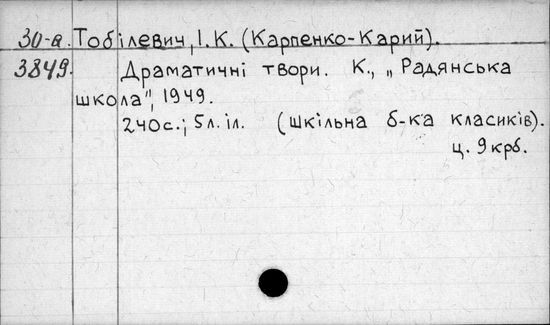 30-а. Тобілевич, І. К. (Карпенко-Карий).
3849. Драматичні твори. К., „Радянська
школа", 1949.
240с.; 5л. іл. (шкільна б-ка класиків).
ц. 9 крб.